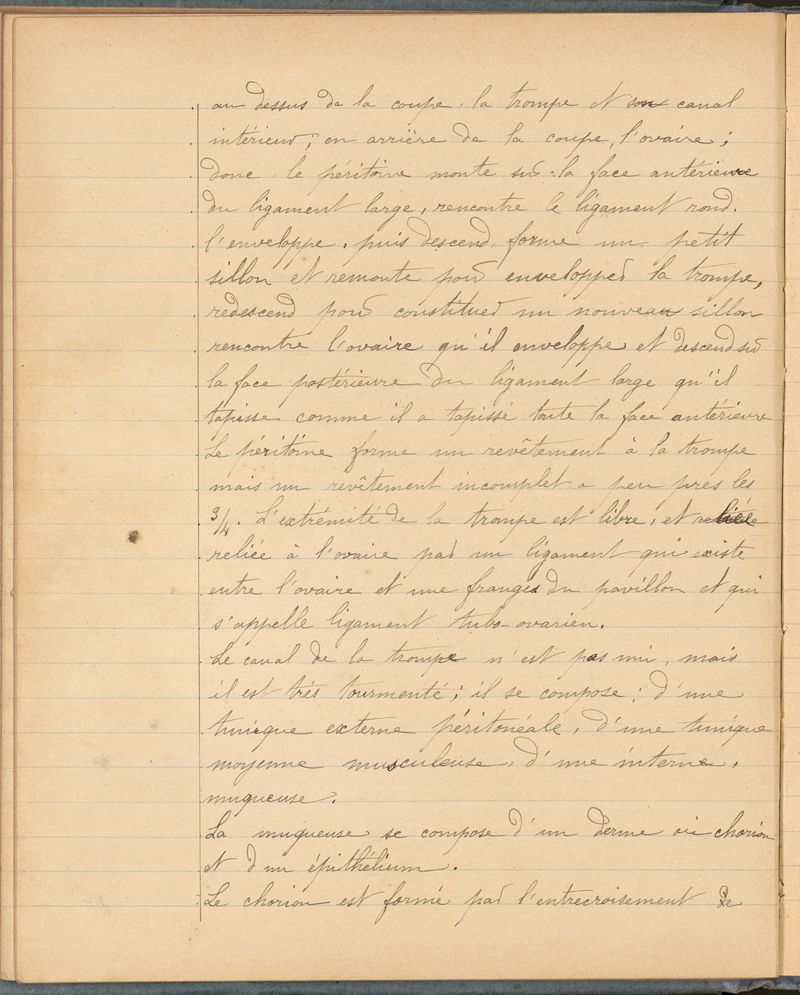 au dessus de la coupe. la trompe et son canal
intérieur; en arrière de la coupe, l'ovaire;
donc le péritoine monte sur la face antérieure
du ligament large, rencontre le ligament rond.
l'enveloppe, puis descend, forme un petit
sillon et remonte pour envelopper la trompe,
redescend pour constituer un nouveau sillon
rencontre l'ovaire qu'il enveloppe et descend sur
la face postérieure du ligament large qu'il
tapisse comme il a tapissé toute la face antérieure
Le péritoine forme un revêtement à la trompe
mais un revêtement incomplet a peu près les
3/4. L'extrémité de la trompe est libre, et reliée
reliée à l'ovaire par un ligament qui existe
entre l'ovaire et une franges du pavillon et qui
s'appelle ligament tubo-ovarien.
Le canal de la trompe n'est pas uni, mais
il est très tourmenté; il se compose: d'une
tunique externe péritonéale, d'une tunique
moyenne musculeuse, d'une interne,
muqueuse.
La muqueuse se compose d'un derme ou chorion
et d'un épithélium.
Le chorion est formé par l'entrecroisement de